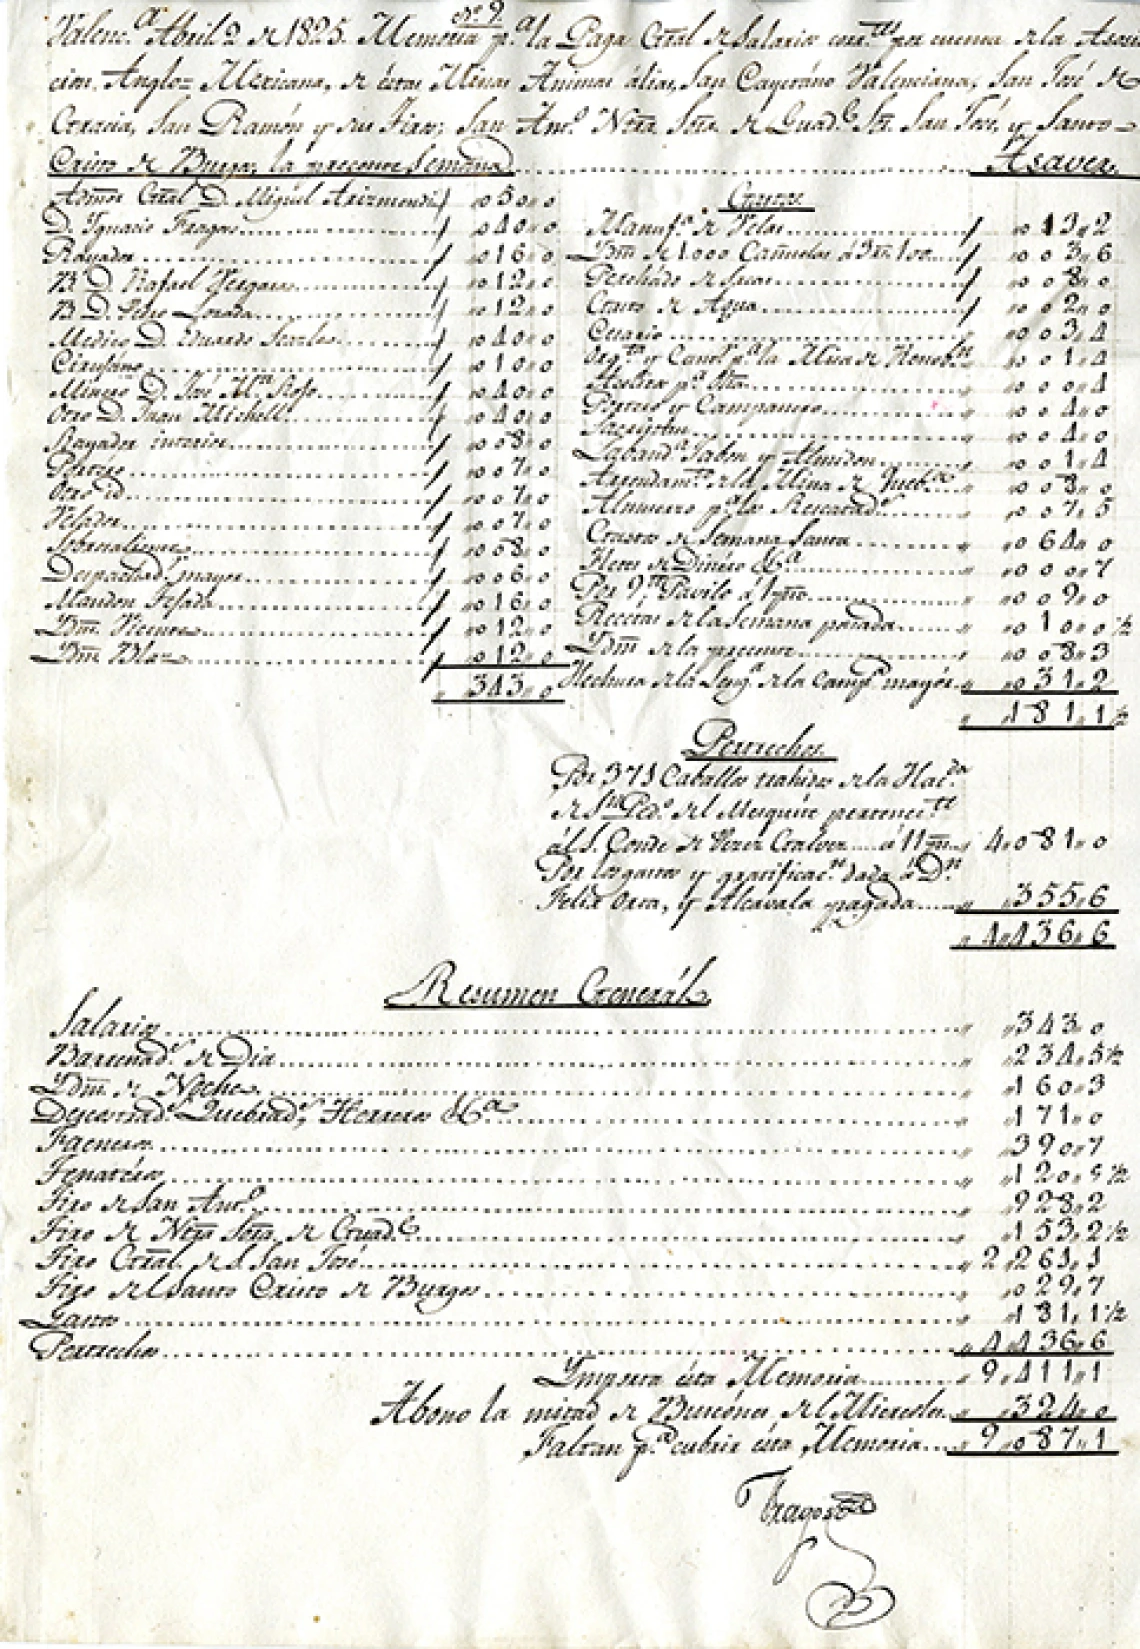 Nº 9.
Valenc.ª Abril 2 de 1825. Memoria p.ª la Paga Gral de Salarios por cuenta de la Asocia
cion Anglo= Mexicana, de estas Minas Animas álias, San Cayetano Valenciana, San José de
Gracia, San Ramón y sus Tiros; San Ant.º Ntra Sra. de Guad.e Sr. San José, y Santo
Cristo de Burgos, la presente Semana Asaver.
Admor Gral D. Miguel Arizmendi 050,,0
D. Ignacio Fragoso 040,,0
Rayador 016,,0
D. Rafael Vergara 012,,0
D. Pedro Losada 012,,0
Medico D. Eduardo 040,,0
Cirujano 010,,0
Minero D. José M.ª Rojo 040,,0
Otro D. Juan Michell 040,,0
Rayador interior 008,,0
Portero 007,,0
Otro id 007,,0
Velador 007,,0
Sobresaliente 008,,0
Despachad.r mayor 006,,0
Mandon Tejada 016,,0
Ydm. 012,,0
Ydm. Blas 012,,0
343,,0
Gastos
Manuf.ª de Velas 043,,2
Ydm de 1.000 Cañuelas á 3 rs. 100 003,,6
008,,0
Gasto de Agua 002,,0
003,,4
y p.ª la Mina de 001,,4
p.ª 000,,4
Portero y Campanero 004,,0
Sacristan 004,,0
Laband.ª Jabon y Almidon 001,,4
Arrendam.to de la Mina de 008,,0
Almuerzo p.ª los Rescatad.s 007,,5
Gastos de Semana Santa 064,,0
de Dinero &.ª 000,,7
Por 9 Pavilo á 1 peso 009,,0
de la Semana pasada 010,,0½
Ydm de la presente 008,,3
Hechura de la Leng.ª de la Camp.ª mayor 031,,2
181,,1½
Pertrechos
Por 371 Caballos trahidos de la Hac.da
de Sn Ped.º del Mesquite pertenec.te
al S. Conde de Perez Galvez á 11 ps. 4,,081,,0
Por los gastos y gratificac.n dada á D.n
Felix Orta, y Alcavala pagada 355,,6
4,,436,,6
Resumen General
Salarios 343,,0
Barrenad.s de Dia 234,,5½
Ydm. de Noche 160,,3
Quebrad.s, Herreros &.ª 171,,0
Faeneros 390,,7
Tenateros 120,,5½
Tiro de San Ant.º 928,,2
Tiro de Ntra Sra. de Guad.e 153,,2½
Tiro Gral. del San José 2,,261,,1
Tiro del Santo Cristo de Burgos 029,,7
Gastos 181,,1½
Pertrechos 4,,436,,6
Ymporta esta Memoria 9,,411,,1
Abono la mitad de Buscones del Miercoles 324,,0
Faltan p.ª cubrir esta Memoria 9,,087,,1
Fragoso